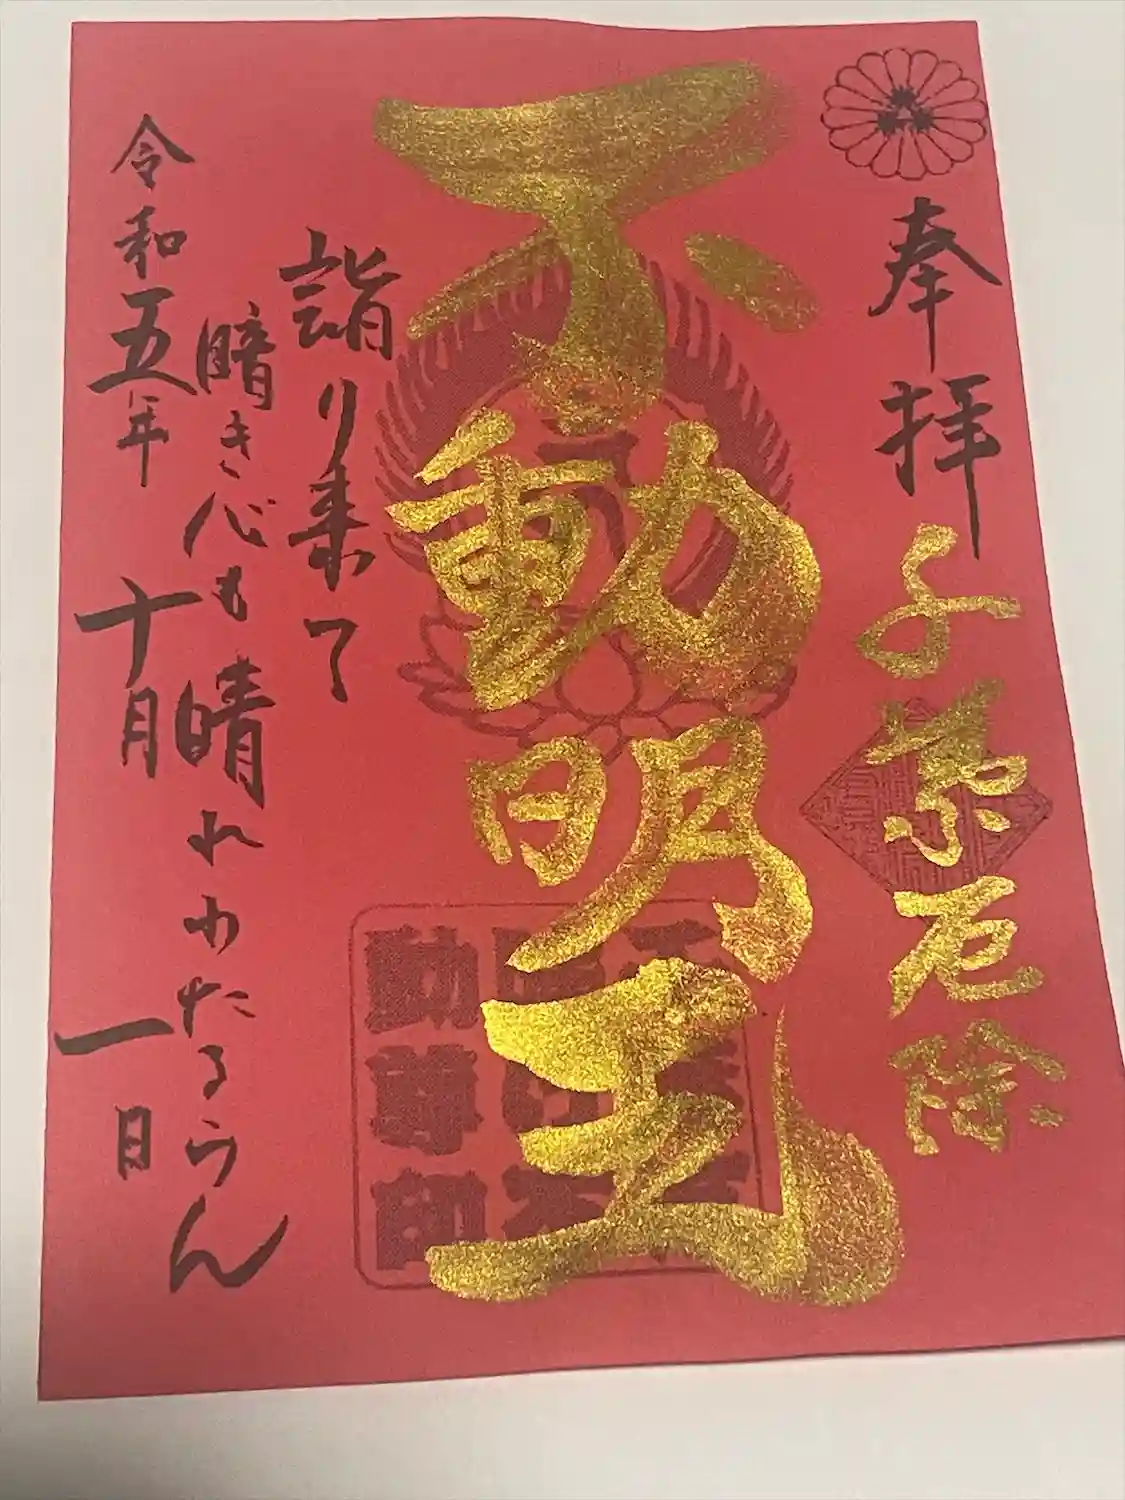 奉拝
厄除
不動明王
詣り来て
暗き心も晴れわたるらん
令和五年十月一日
動尊印